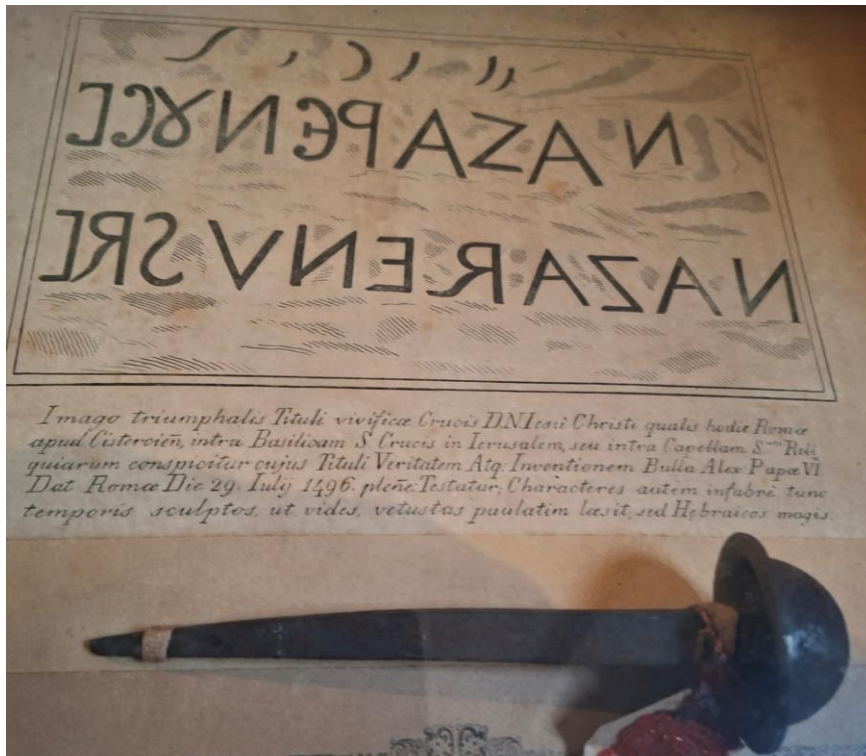 NAZAPЄNȢC
NAZARENVSRE
Imago triumphalis Tituli vivificæ Crucis D.N Iesu Christi qualis hodie Romæ
apud Cistercień, intra Basilicam S. Crucis in Ierusalem, seu intra Capellam S Reli
quiarum conspicitur cujus Tituli Veritatem Atq. Inventionem Bulla Alex Papæ VI
Dat Romæ Die 29. Iulij 1496. pleñe Testatur; Characteres autem infabrè tunc
temporis sculptos, ut vides, vetustas paulatim læsit, sed Hebraicos magis.